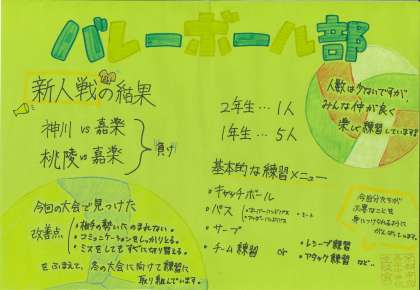 バレーボール部
新人戦の結果
神川 vs 嘉楽
桃陵 vs 嘉楽
負け
今回の大会で見つけた
改善点
・相手の勢いにのまれない。
・コミュニケーションをしっかりとる。
・ミスをしてもすぐに切り替える。
をふまえて、冬の大会に向けて練習に
取り組んでいます。
2年生…1人
1年生…5人
人数は少ないですが、
みんな仲が良く
楽しく練習しています!
基本的な練習メニュー
・キャッチボール
・パス
・オーバーハンドパス
・アンダーハンドパス
・サーブ
・チーム練習 or
・レシーブ練習
・アタック練習 など…
今自分たちが
必要なことを
身につけられるように
がんばっています。